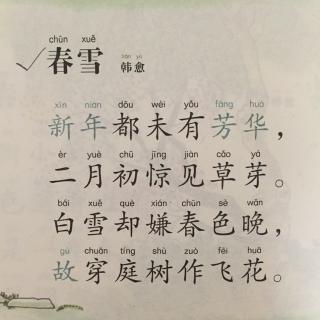 chūn xuě
春雪 韩愈
xīn nián dōu wèi yǒu fāng huá
新年都未有芳华，
èr yuè chū jīng jiàn cǎo yá
二月初惊见草芽。
bái xuě què xián chūn sè wǎn
白雪却嫌春色晚，
gù chuān tíng shù zuò fēi huā
故穿庭树作飞花。